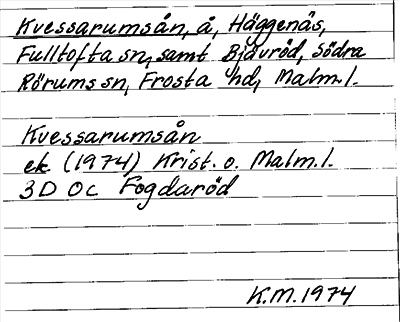 Kvessarumsån, å, Häggenäs,
Fulltofta sn, samt Bjävröd, Södra
Rörums sn, Frosta hd, Malm. l.
Kvessarumsån
ek (1974) Krist. o. Malm. l.
3D 0c Fogdaröd
K.M. 1974